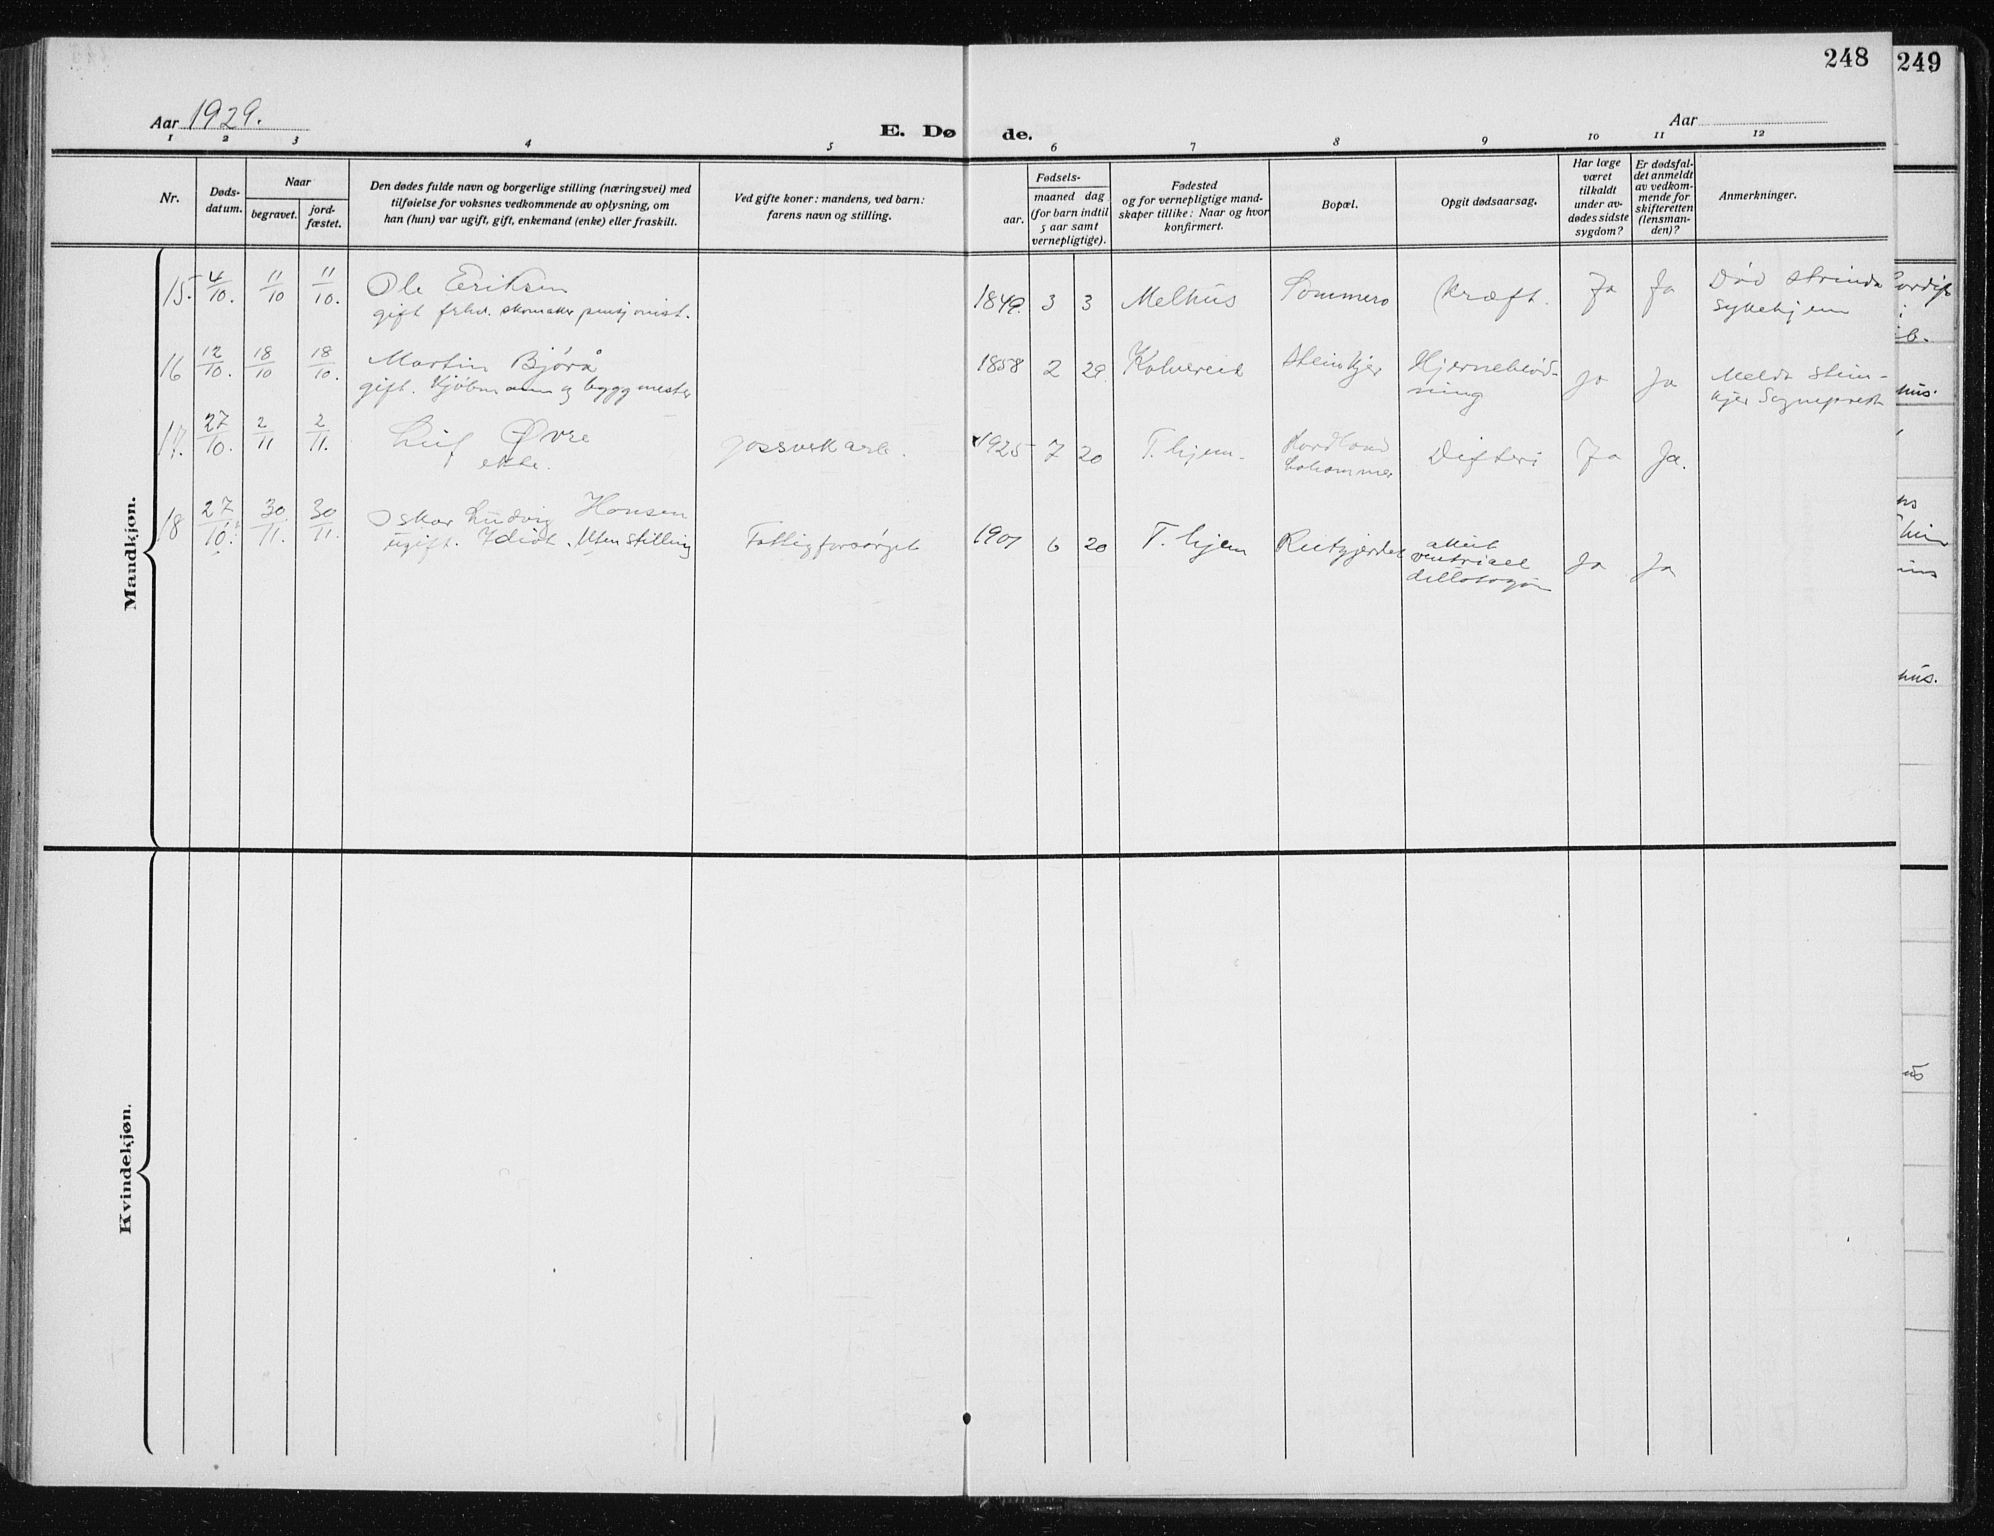 248
249
Aar 1929.
E. Dø de.
Aar
1 2 3 4 5 6 7 8 9 10 11 12
Nr.
Døds-
datum.
Naar
begravet.
jord-
fæstet.
Den dødes fulde navn og borgerlige stilling (næringsvei) med
tilføielse for voksnes vedkommende av oplysning, om
han (hun) var ugift, gift, enkemand (enke) eller fraskilt.
Ved gifte koner: mandens, ved barn:
farens navn og stilling.
Fødsels-
aar.
maaned dag
(for barn indtil
5 aar samt
vernepligtige).
Fødested
og for vernepligtige mand-
skaper tillike: Naar og hvor
konfirmert.
Bopæl.
Opgit dødsaarsag.
Har læge
været
tilkaldt
under av-
dødes sidste
sygdom?
Er dødsfal-
det anmeldt
av vedkom-
mende for
skifteretten
(lensman-
den)?
Anmerkninger.
Mandkjøn.
15. 4/10. 11/10 11/10. Ole Eriksen 1849. 3 3 Melhus Sommero Kræft. Ja Ja Død Strinda
gift. skomaker pensjonist. Sykehjem
16 12/10. 18/10 18/10. Martin Bjørå 1858 2 29 Kolvereid Steinkjer Hjerneblød- Ja Ja Meldt Stein-
gift. Kjøbmann og byggmester ning kjer Sogneprest
17. 27/10. 2/11 2/11. Leif Øvre 1925 7 20 T. hjem. Difteri Ja Ja.
ekte.
18 27/10. 30/11. 30/11. Oskar Ludvig Hansen Fattigforsørget 1901 6 20 T. hjem Ja Ja
ugift. Idiot. Uten stilling
Kvindekjøn.